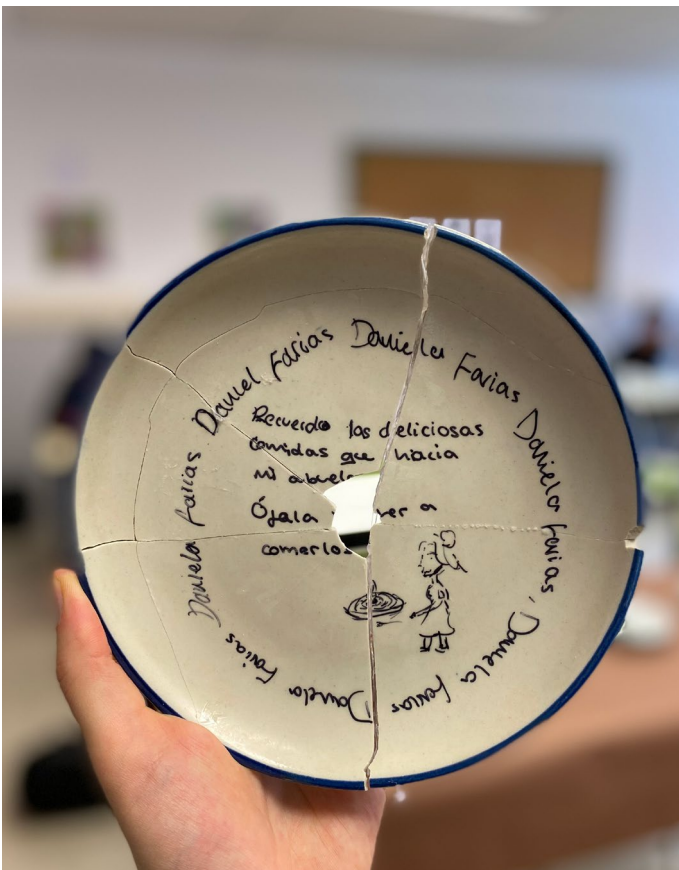 Daniel Farias Daniela Farias Daniela Farias, Daniela Farias Daniela Farias Daniela Farias
Recuerdo las deliciosas
comidas que hacia
mi abuela
Ójala ver a
comerlos